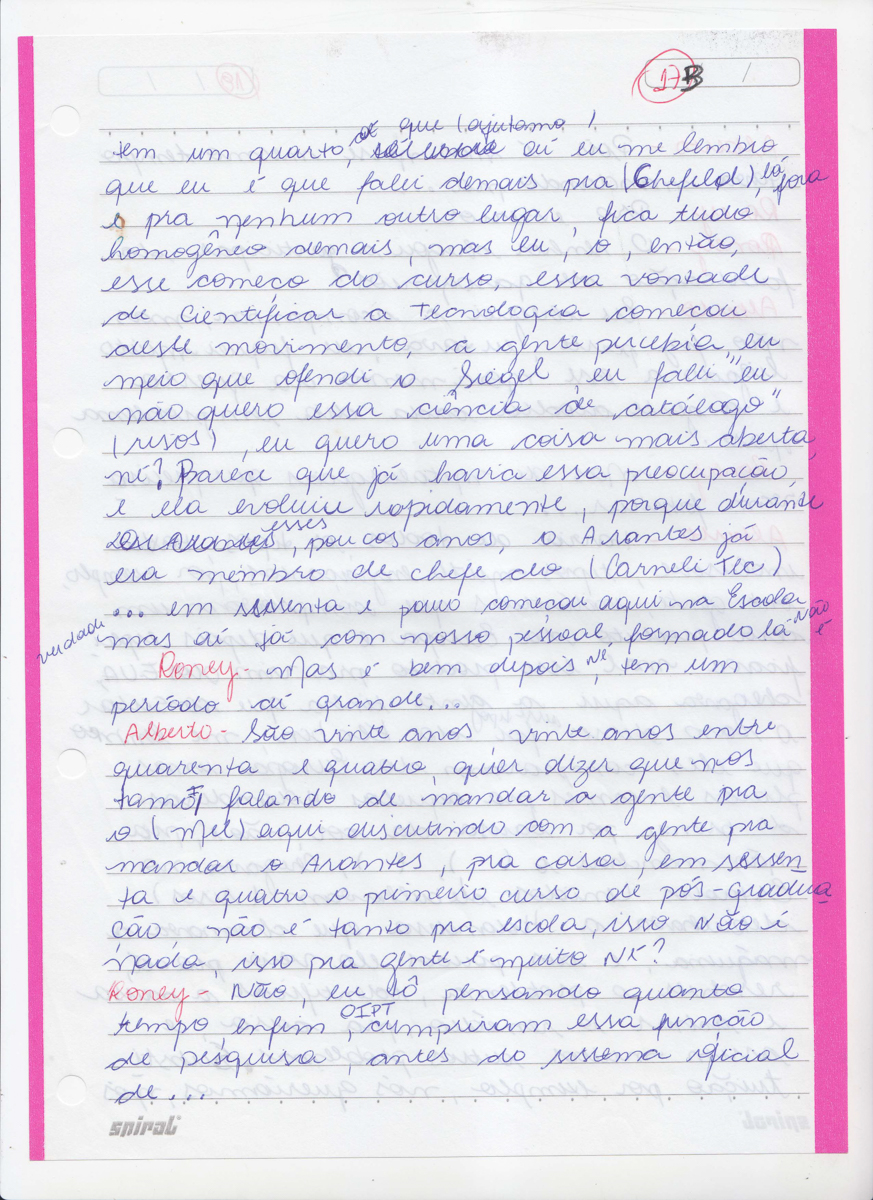 17B /
que (ajutamo)
tem um quarto, aí eu me lembro
que eu é que falei demais pra (Chefeld), lá fora
e pra nenhum outro lugar fica tudo
homogêneo demais, mas eu, o, então,
esse começo do curso, essa vontade
de Cientificar a Tecnologia começou
deste movimento, a gente percebia "eu
meio que ofendi o Siegel, eu falei "eu
não quero essa ciência de catálogo"
(risos), eu quero uma coisa mais aberta,
né? Parece que já havia essa preocupação,
e ela evoluiu rapidamente, porque durante
esses
poucos anos, o Arantes já
era membro de chefe do (Carneli Tec)
... em sessenta e pouco começou aqui na Escola
verdade mas aí já com nosso pessoal formado lá não é
Roney - Mas é bem depois, né, tem um
período aí grande...
Alberto - São vinte anos vinte anos entre
quarenta e quatro, quer dizer que nos
tamos falando de mandar a gente pra
o (Mel) aqui discutindo com a gente pra
mandar o Arantes, pra casa, em sessen
ta e quatro o primeiro curso de pós-gradua
ção não é tanto pra escola, isso Não é
nada, isso pra gente é muito NÉ?
Roney - Não, eu tô pensando quanto
tempo enfim, OIPT cumpriram essa função
de pesquisa, antes do sistema oficial
de...
spiral